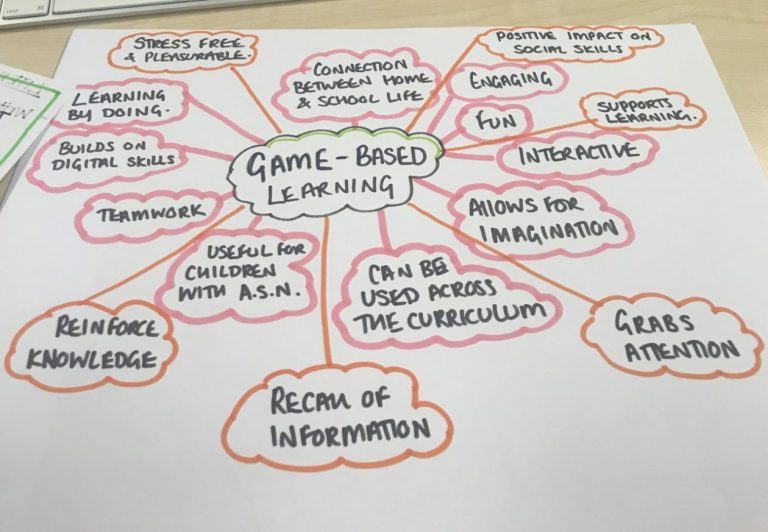 STRESS FREE
& PLEASURABLE.
CONNECTION
BETWEEN HOME
& SCHOOL LIFE
POSITIVE IMPACT ON
SOCIAL SKILLS
ENGAGING
LEARNING
BY DOING.
FUN
SUPPORTS
LEARNING.
BUILDS ON
DIGITAL SKILLS
GAME-BASED
LEARNING
INTERACTIVE
TEAMWORK
ALLOWS FOR
IMAGINATION
USEFUL FOR
CHILDREN
WITH A.S.N.
CAN BE
USED ACROSS
THE CURRICULUM
REINFORCE
KNOWLEDGE
GRABS
ATTENTION
RECALL OF
INFORMATION